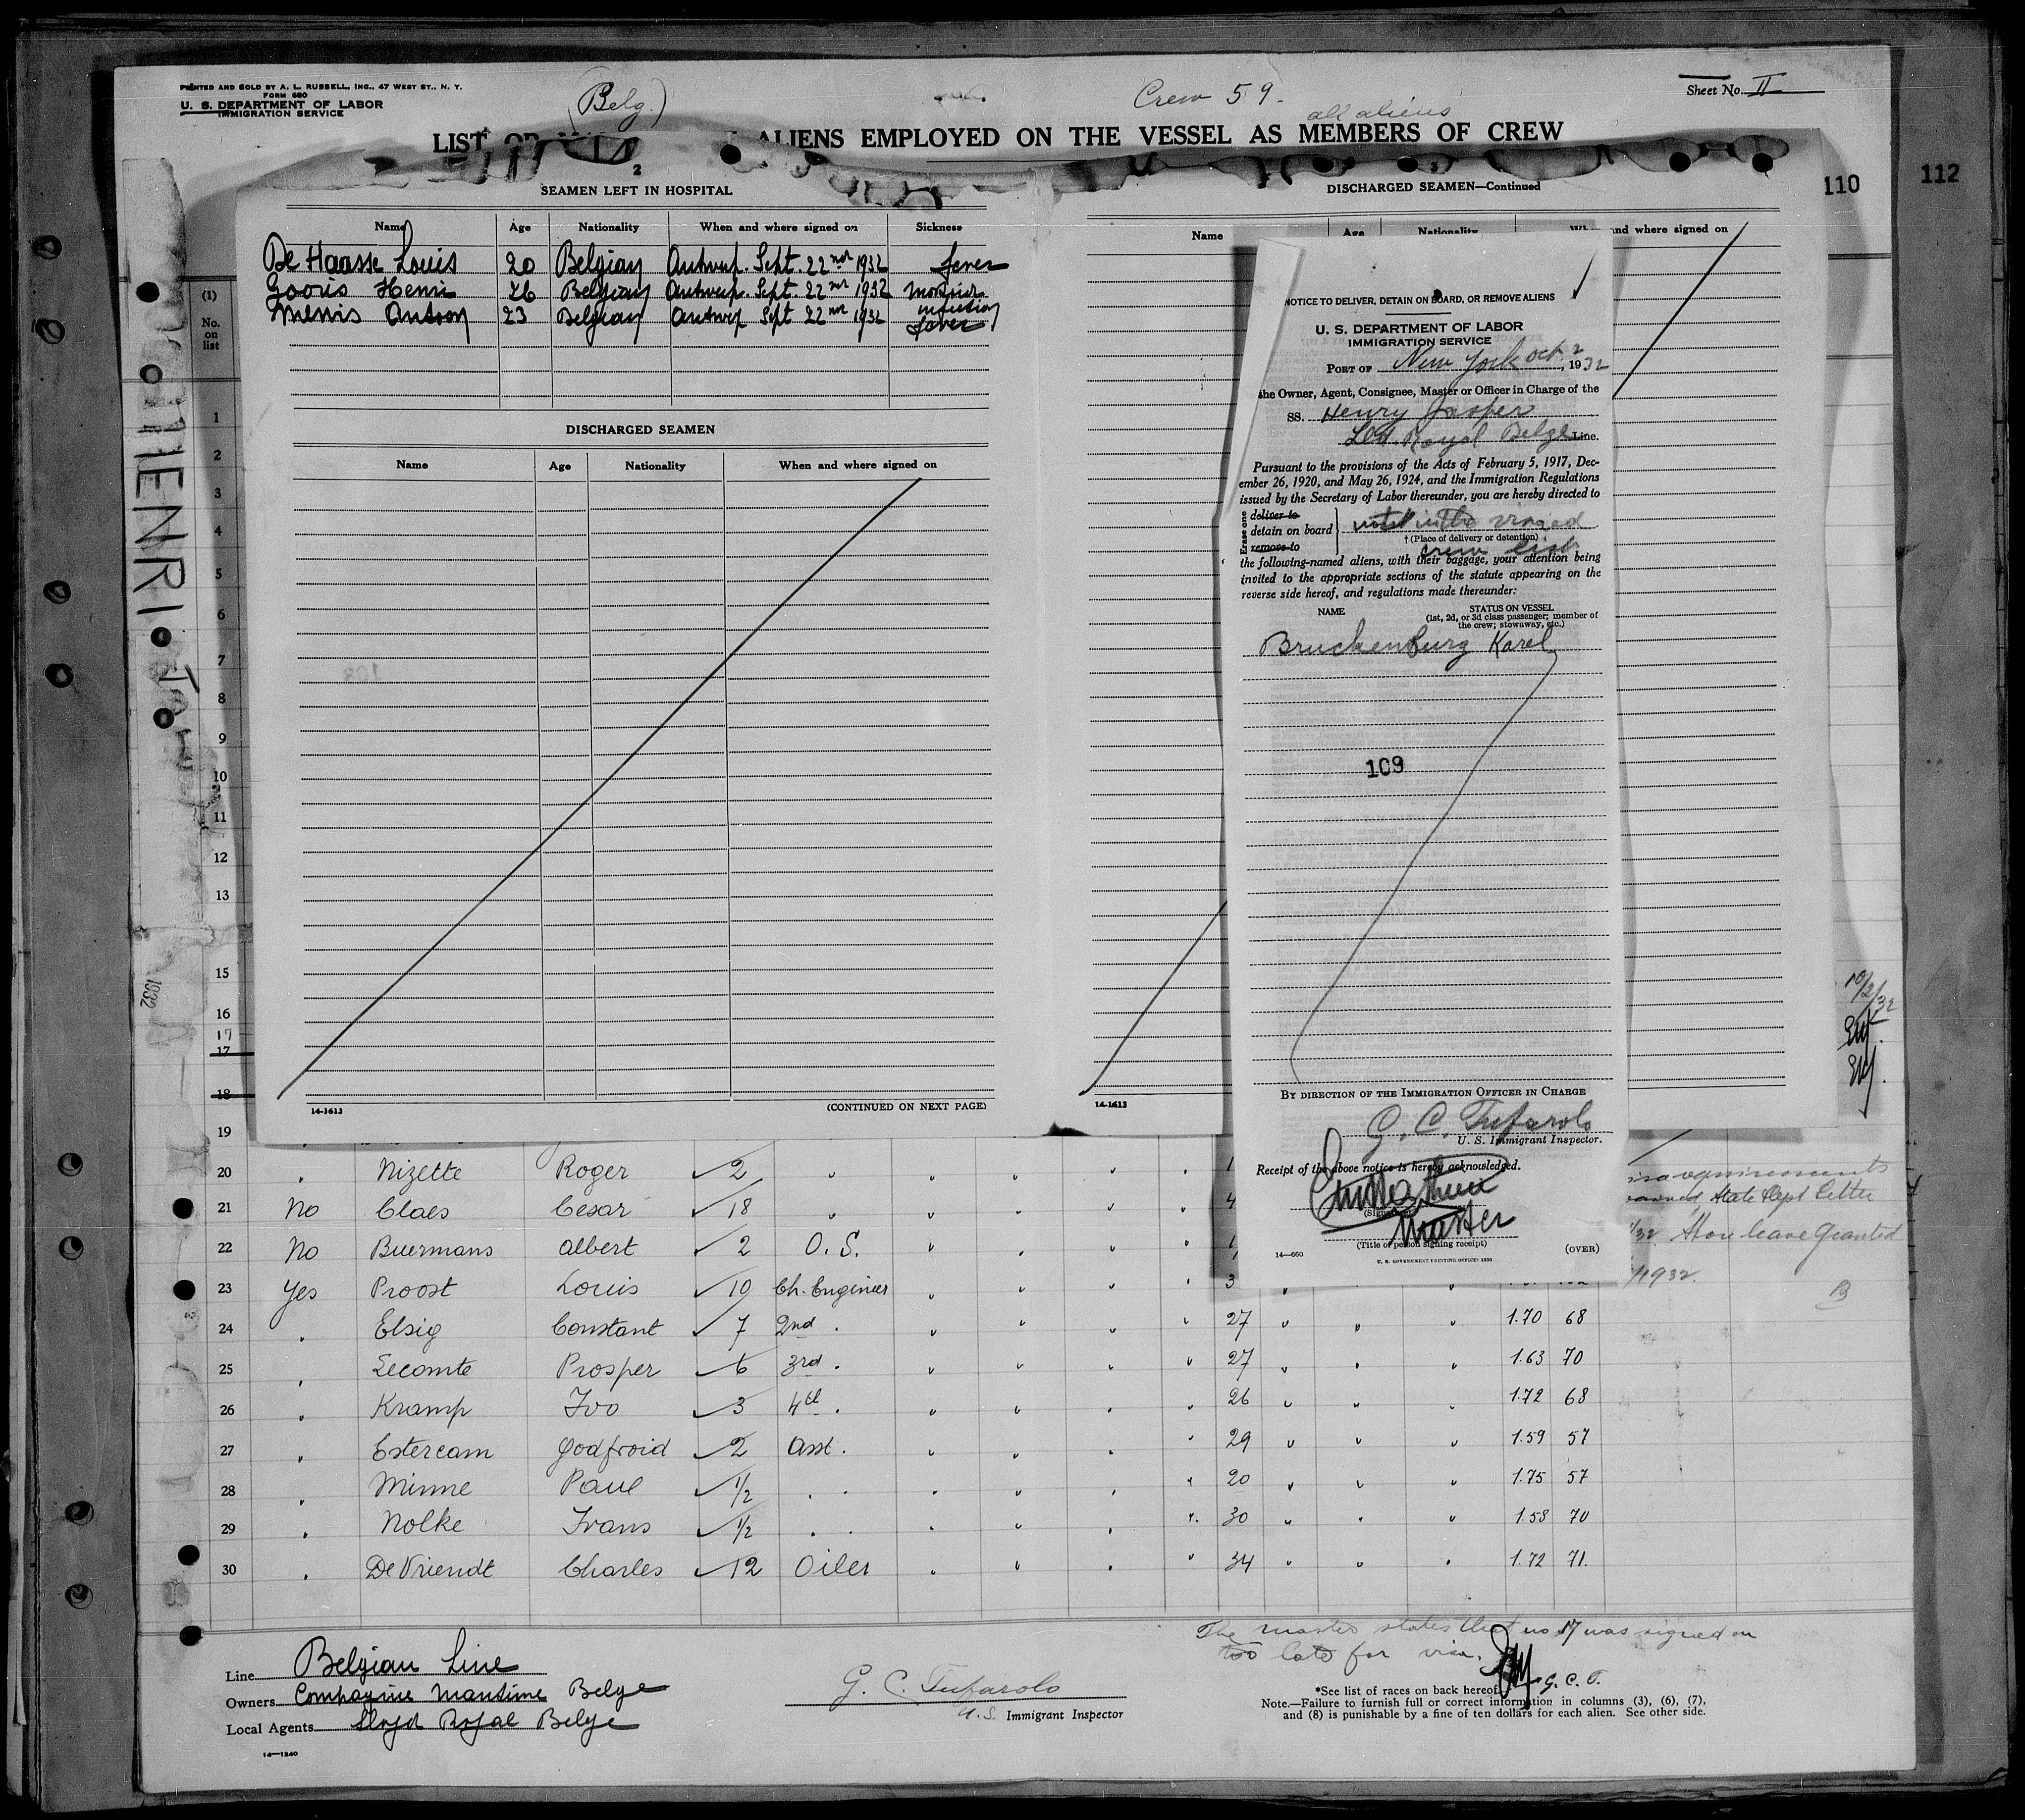 PRINTED AND SOLD BY A. L. RUSSELL, INC., 47 WEST ST., N. Y.
FORM 680
U. S. DEPARTMENT OF LABOR
IMMIGRATION SERVICE
(Belg.)
Crew 59.
all aliens
Sheet No. II
LIST ALIENS EMPLOYED ON THE VESSEL AS MEMBERS OF CREW
110
112
2
SEAMEN LEFT IN HOSPITAL
Name Age Nationality When and where signed on Sickness
De Haasse Louis 20 Belgian Antwerp. Sept. 22nd 1932 fever
Gooris Henri 26 Belgian Antwerp. Sept. 22nd 1932
infection
Antoon 23 Belgian Antwerp Sept 22nd 1932 fever
DISCHARGED SEAMEN
Name Age Nationality When and where signed on
14-1613
(CONTINUED ON NEXT PAGE)
DISCHARGED SEAMEN—Continued
Name Age Nationality When and where signed on
14-1613
NOTICE TO DELIVER, DETAIN ON BOARD, OR REMOVE ALIENS
U. S. DEPARTMENT OF LABOR
IMMIGRATION SERVICE
PORT OF New York Oct 2, 1932
the Owner, Agent, Consignee, Master or Officer in Charge of the
SS. Henry Jaspar
Royal Belge Line.
Pursuant to the provisions of the Acts of February 5, 1917, Dec-
ember 26, 1920, and May 26, 1924, and the Immigration Regulations
issued by the Secretary of Labor thereunder, you are hereby directed to
Erase one
deliver to
detain on board
remove to
† (Place of delivery or detention)
crew list
the following-named aliens, with their baggage, your attention being
invited to the appropriate sections of the statute appearing on the
reverse side hereof, and regulations made thereunder:
NAME
STATUS ON VESSEL
(1st, 2d, or 3d class passenger; member of
the crew; stowaway, etc.)
Bruckenburg Karel
109
BY DIRECTION OF THE IMMIGRATION OFFICER IN CHARGE
G. C. Tufarolo
U. S. Immigrant Inspector.
Receipt of the above notice is hereby acknowledged.
Master
(Title of person signing receipt)
14—660
(OVER)
U. S. GOVERNMENT PRINTING OFFICE: 1930
HENRI
1932
(1)
No.
on
list
1
2
3
4
5
6
7
8
9
10
11
12
13
15
16
17
17
18
19
10/2/32
20 Nizette Roger 2
21 No Claes Cesar 18 4
22 No Buermans Albert 2 O. S.
State Dept Letter
Shore leave Granted
/1932.
B
23 Yes Proost Louis 10 Ch. Engineer 3
24 Elsig Constant 7 2nd 27 1.70 68
25 Lecomte Prosper 6 3rd 27 1.63 70
26 Kramp Ivo 3 4th 26 1.72 68
27 Estercam Godfroid 2 Asst. 29 1.59 57
28 Minne Paul 1/2 20 1.75 57
29 Nolke Frans 1/2 30 1.58 70
30 De Vriendt Charles 12 Oiler 34 1.72 71
The master states that no 17 was signed on
too late for visa.
G. C. T.
Line Belgian Line
Owners Compagnie Maritime Belge
Local Agents Lloyd Royal Belge
14—1240
G. C. Tufarolo
U.S. Immigrant Inspector
*See list of races on back hereof.
Note.—Failure to furnish full or correct information in columns (3), (6), (7),
and (8) is punishable by a fine of ten dollars for each alien. See other side.